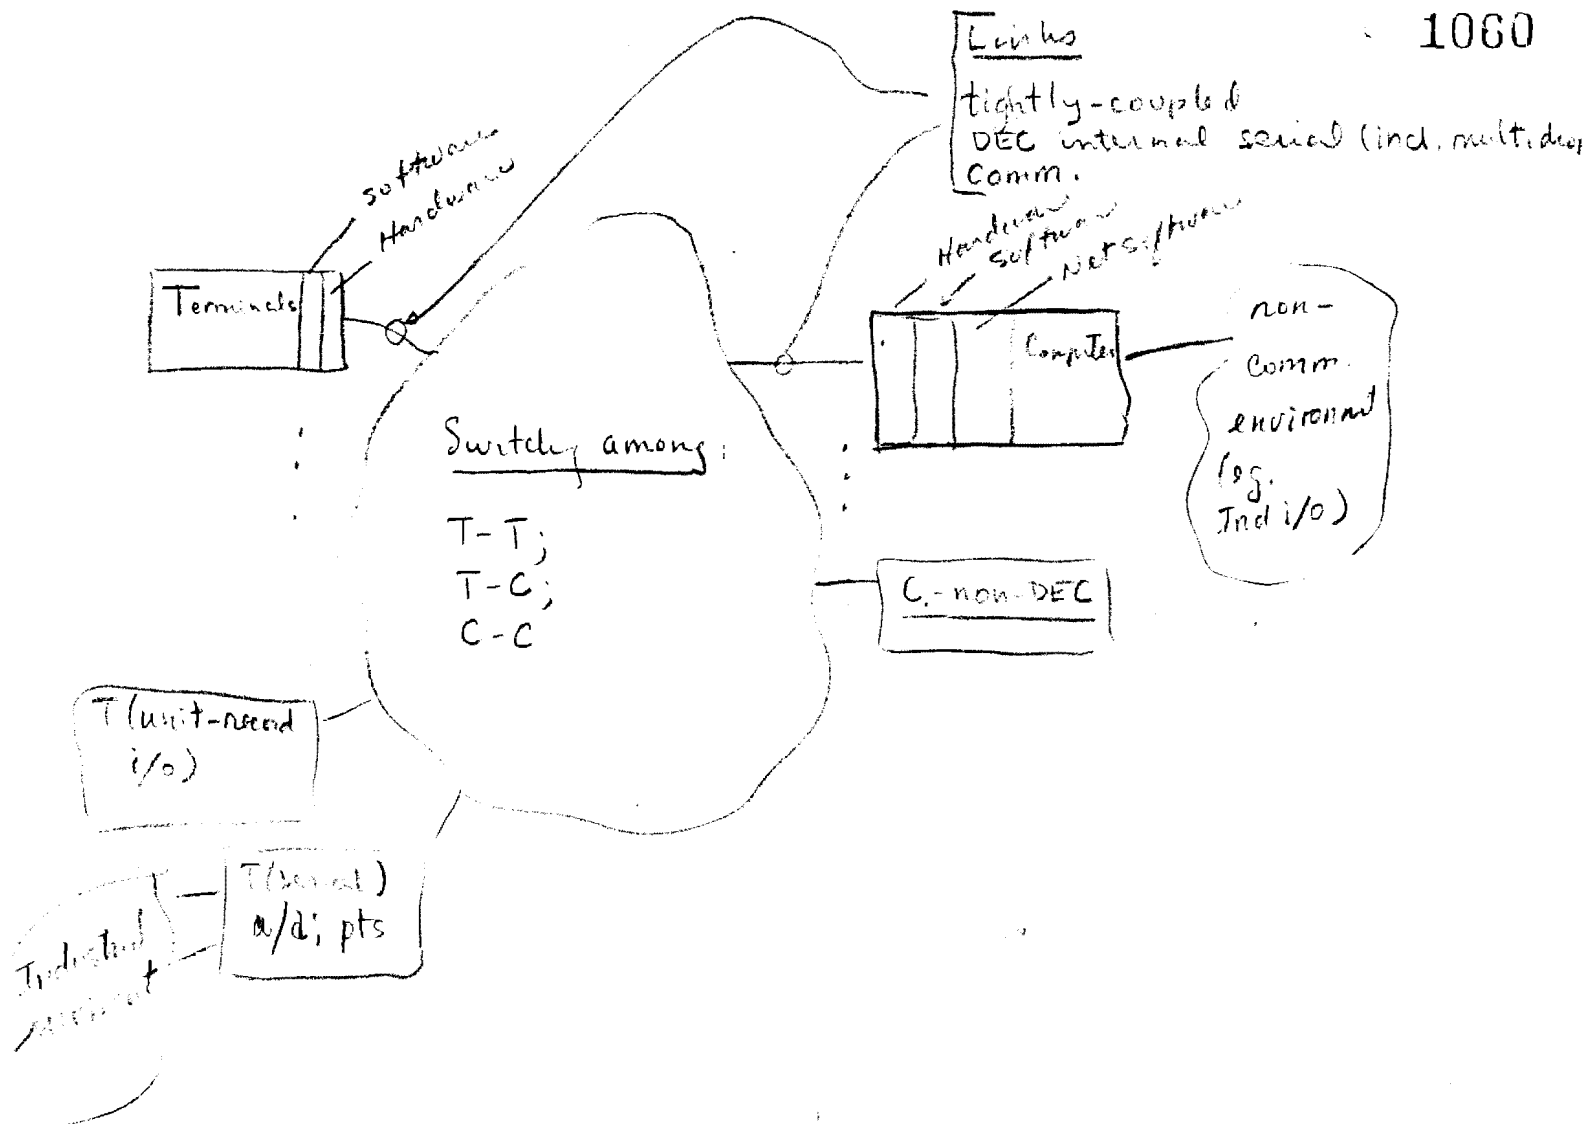 1060
Links
tightly-coupled
DEC internal serial (incl. multidrop
Comm.
software
Hardware
Hardware
software
Net software
Terminals
Computer
non-
comm.
environmt
(eg.
Ind i/o)
Switchg among:
T-T;
T-C;
C-C
C.-non-DEC
T(unit-record
i/o)
T(serial)
a/d; pts
Industrial